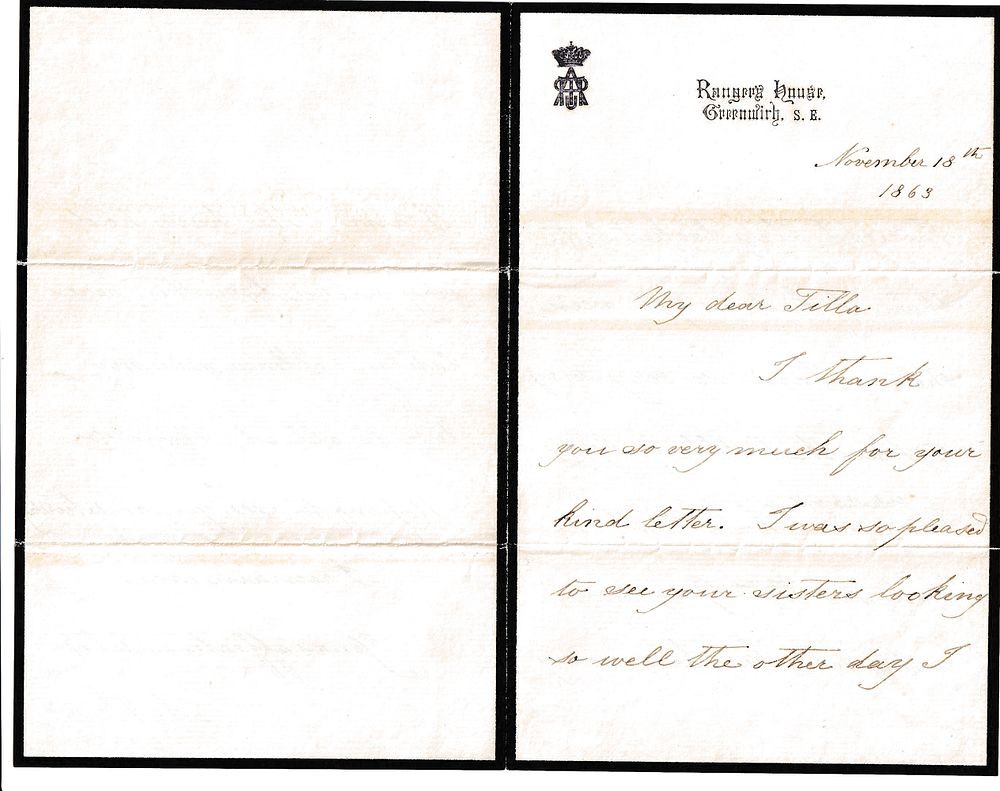 Rangers House,
Greenwich, S. E.
November 18th
1863
My dear Tilla
I thank
you so very much for your
kind letter. I was so pleased
to see your sisters looking
so well the other day I